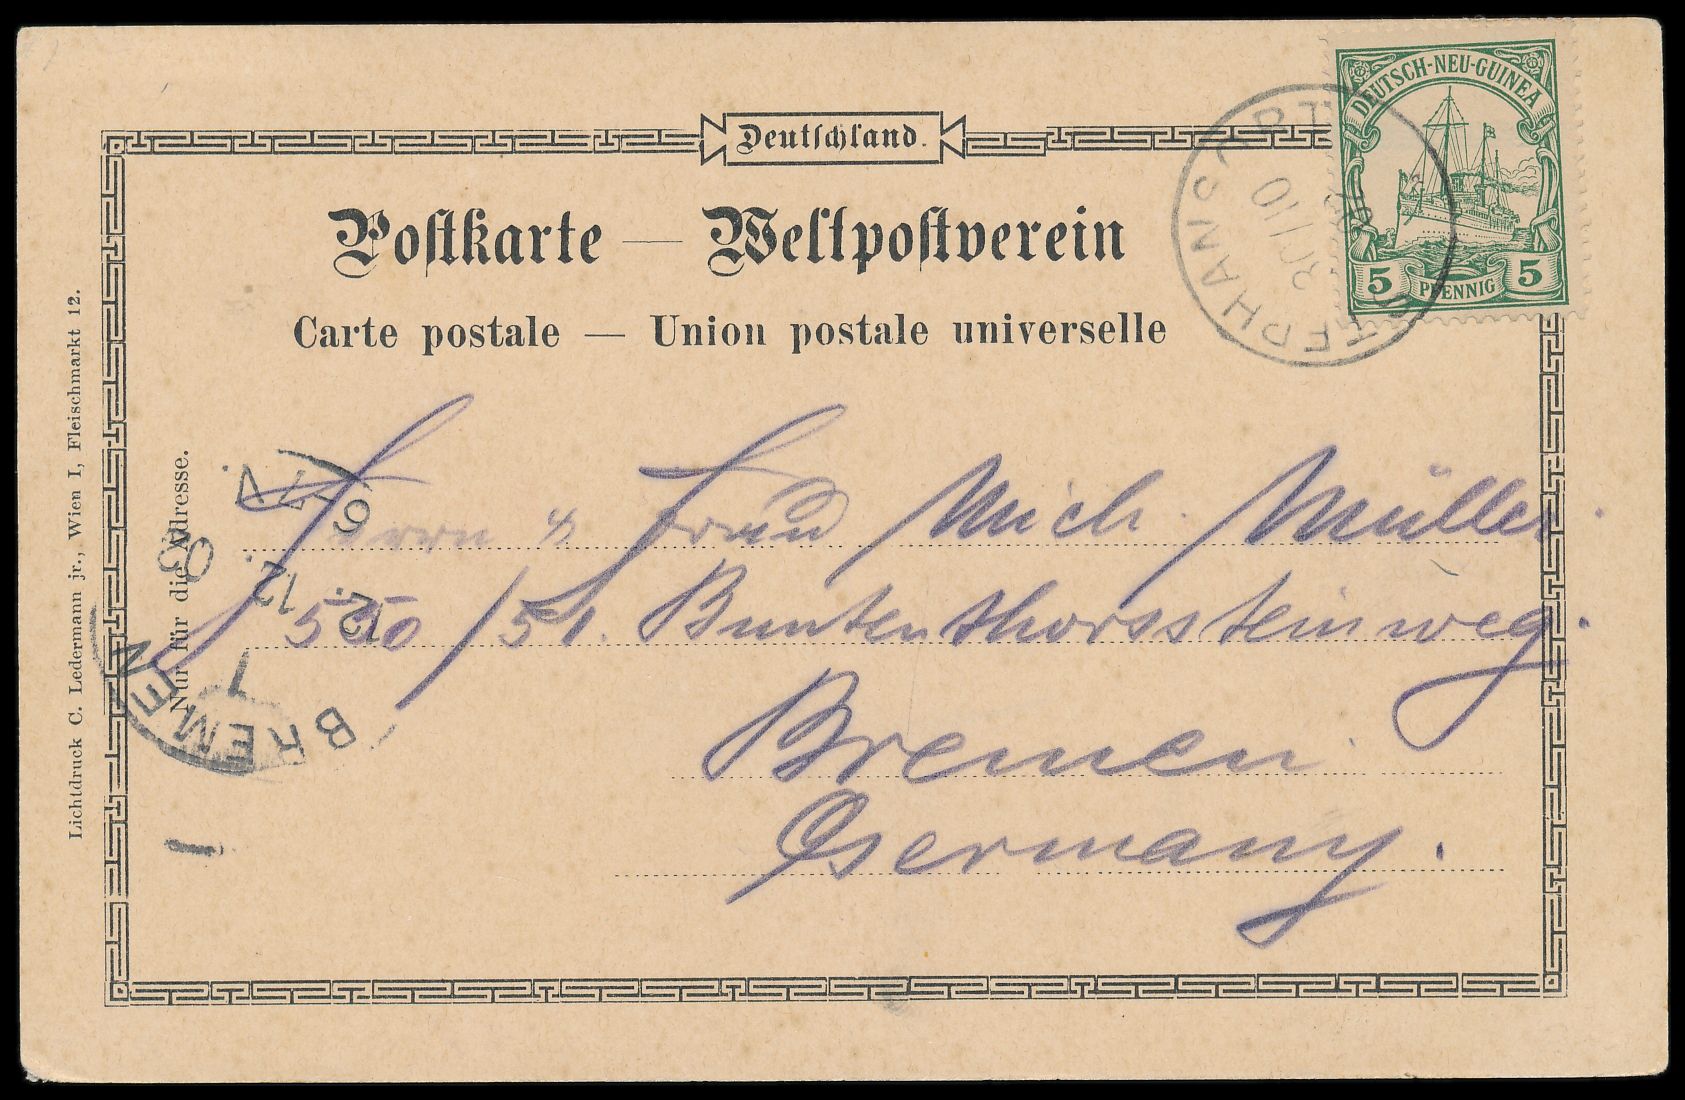 Deutschland.
DEUTSCH-NEU-GUINEA
5 PFENNIG 5
STEPHANSORT
30/10
Postkarte — Weltpostverein
Carte postale — Union postale universelle
Herrn & Frau Mich. Müller.
550/51. Buntenthorssteinweg.
Bremen.
Germany.
BREMEN
1
12. 12.
6-7 N.
Nur für die Adresse.
Lichtdruck C. Ledermann jr., Wien I, Fleischmarkt 12.